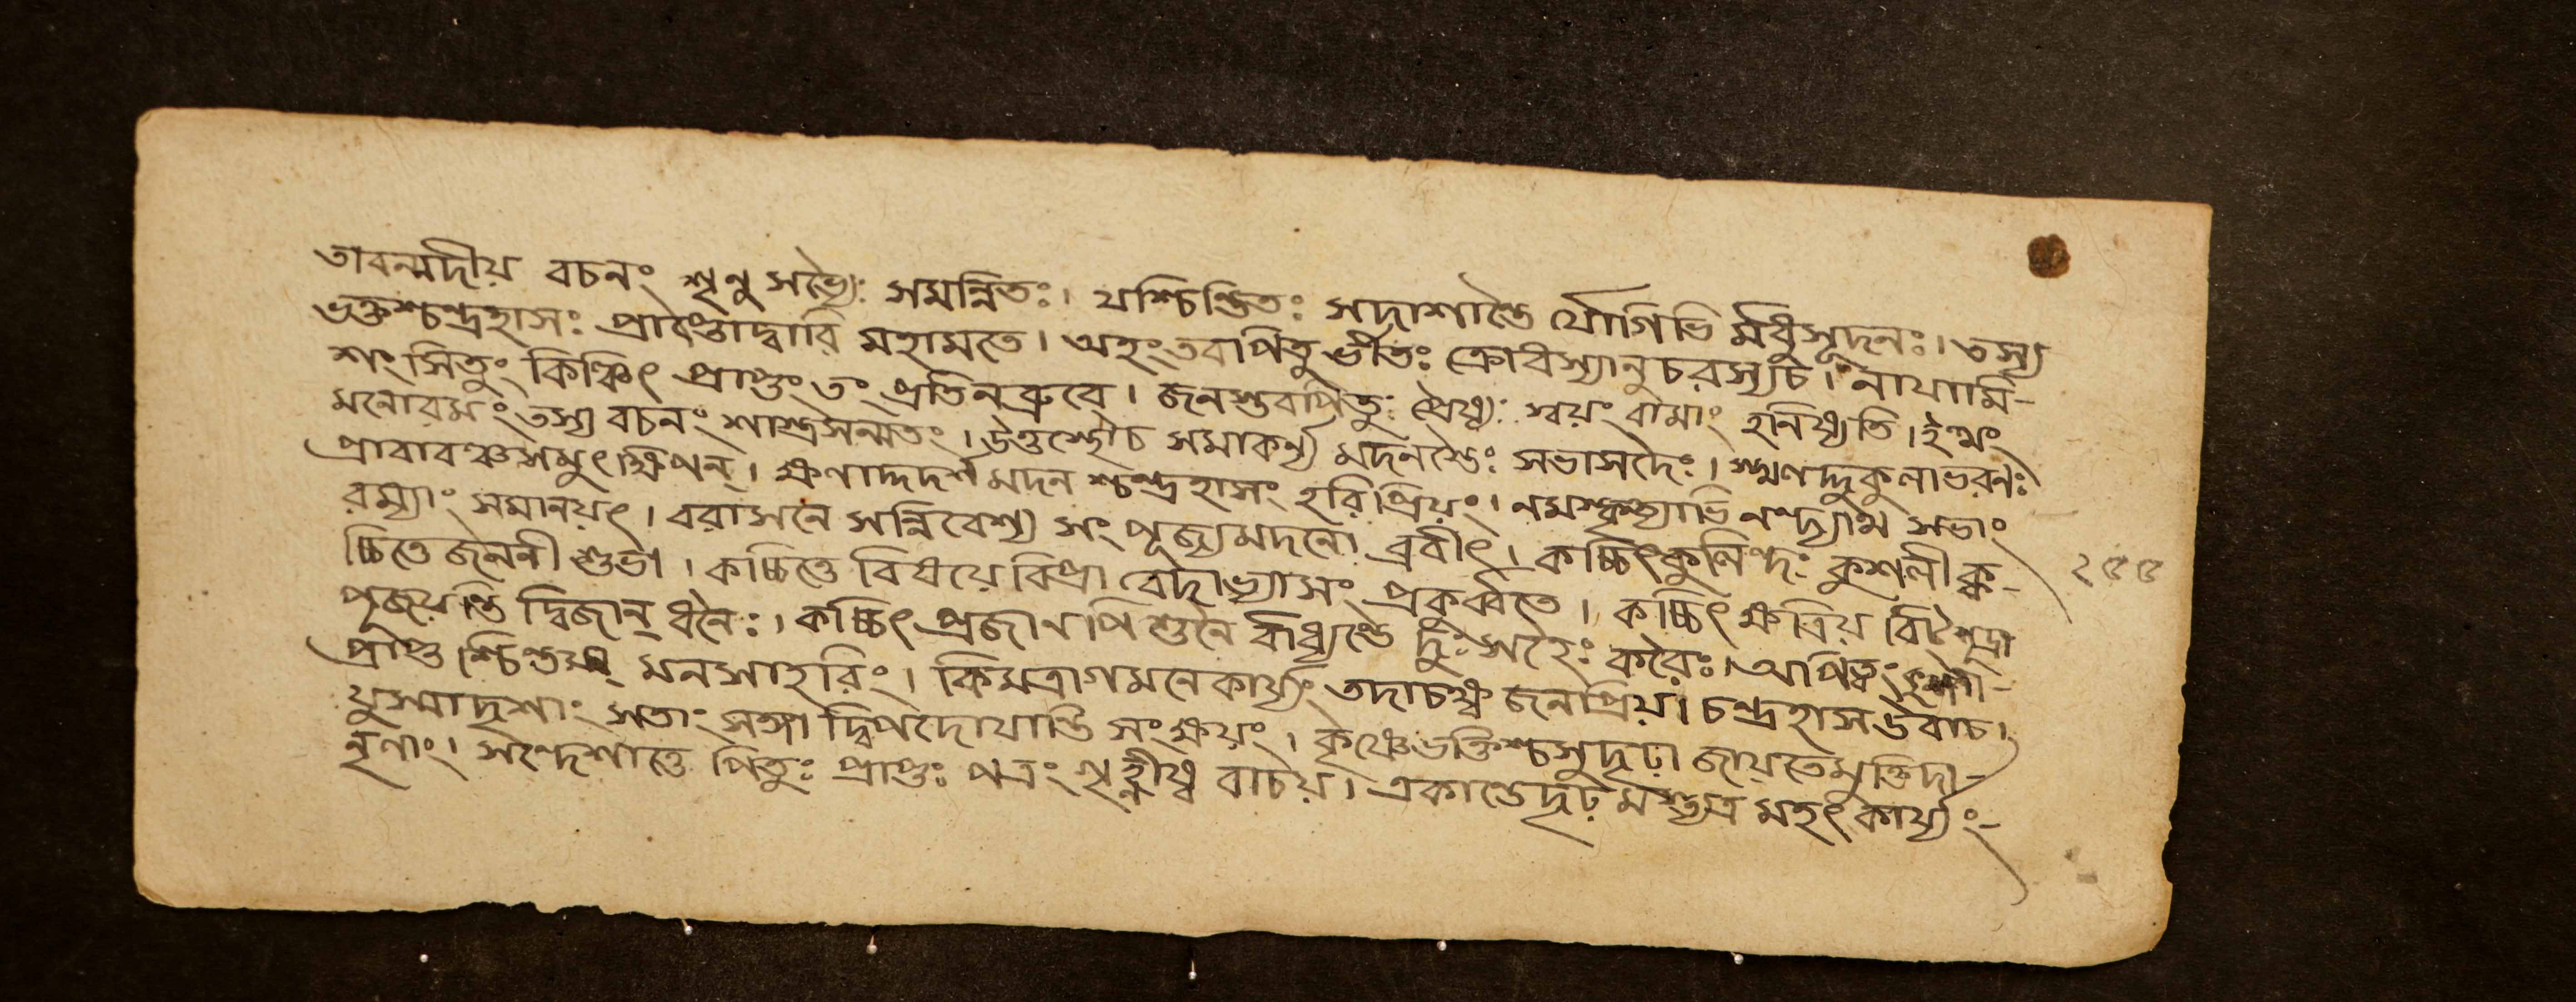 তাবন্মদীয় বচনং শৃনু সভ্যৈঃ সমন্নিতঃ। যশ্চিন্তিতঃ সদাশান্তৈ র্যোগিভি র্মধুসূদনঃ। তস্য
ভক্তশ্চন্দ্রহাসঃ প্রাপ্তোদ্বারি মহামতে। অহং তবপিতু র্ভীতঃ ক্রোধস্যানুচরস্যচ। নাযামি-
শংসিতুং কিঞ্চিৎ প্রাপ্তং তং প্রতিনব্রুবে। জনস্তবপিতুঃ প্রৈষ্যঃ স্বয়ং বামাং হনিষ্যতি। ইত্থং
মনোরমং তস্য বচনং শাস্ত্রসন্মতং। উত্তস্থৌচ সমাকর্ণ্য মদনস্তৈঃ সভাসদৈঃ। স্খণদ্দুকুলাভরনঃ
প্রাবাবঞ্চসমুৎক্ষিপন্। ক্ষণাদ্দদর্শ মদন শ্চন্দ্রহাসং হরিপ্রিয়ং। নমস্কৃত্যাভি নন্দ্যাথ সভাং
রম্যাং সমানয়ৎ। বরাসনে সন্নিবেশ্য সংপূজ্যমদনো ব্রবীৎ। কচ্চিৎকুলিন্দঃ কুশলী ক-
চ্চিত্তেজননী শুভা। কচ্চিত্তে বিষয়ে বিপ্রা বেদাভ্যাসং প্রকুর্ব্বতে। কচ্চিৎ ক্ষত্রিয় বিটশূদ্রা
পূজয়ন্তি দ্বিজান্ ধনৈঃ। কচ্চিৎ প্রজান পিশুনৈ র্বাধ্যন্তে দুঃসহৈঃ করৈঃ। আপিত্বং
প্রাপ্ত শ্চিন্তয়ন্ মনসাহরিং। কিমত্রাগমনেকার্য্যং তদাচক্ষ্ব জনপ্রিয়। চন্দ্রহাস উবাচ।
যুস্মাদৃশাং সতাং সঙ্গা দ্বিপদোযান্তি সংক্ষয়ং। কৃষ্ণেভক্তিশ্চসুদৃঢ়া জায়তেমুক্তিদা-
নৃণাং। সন্দেশাত্তে পিতুঃ প্রাপ্তঃ পত্রং গৃহ্ণীষ্ব বাচয়। একান্তেদৃঢ় মস্ত্যত্র মহৎকার্য্যং-
২৫৫